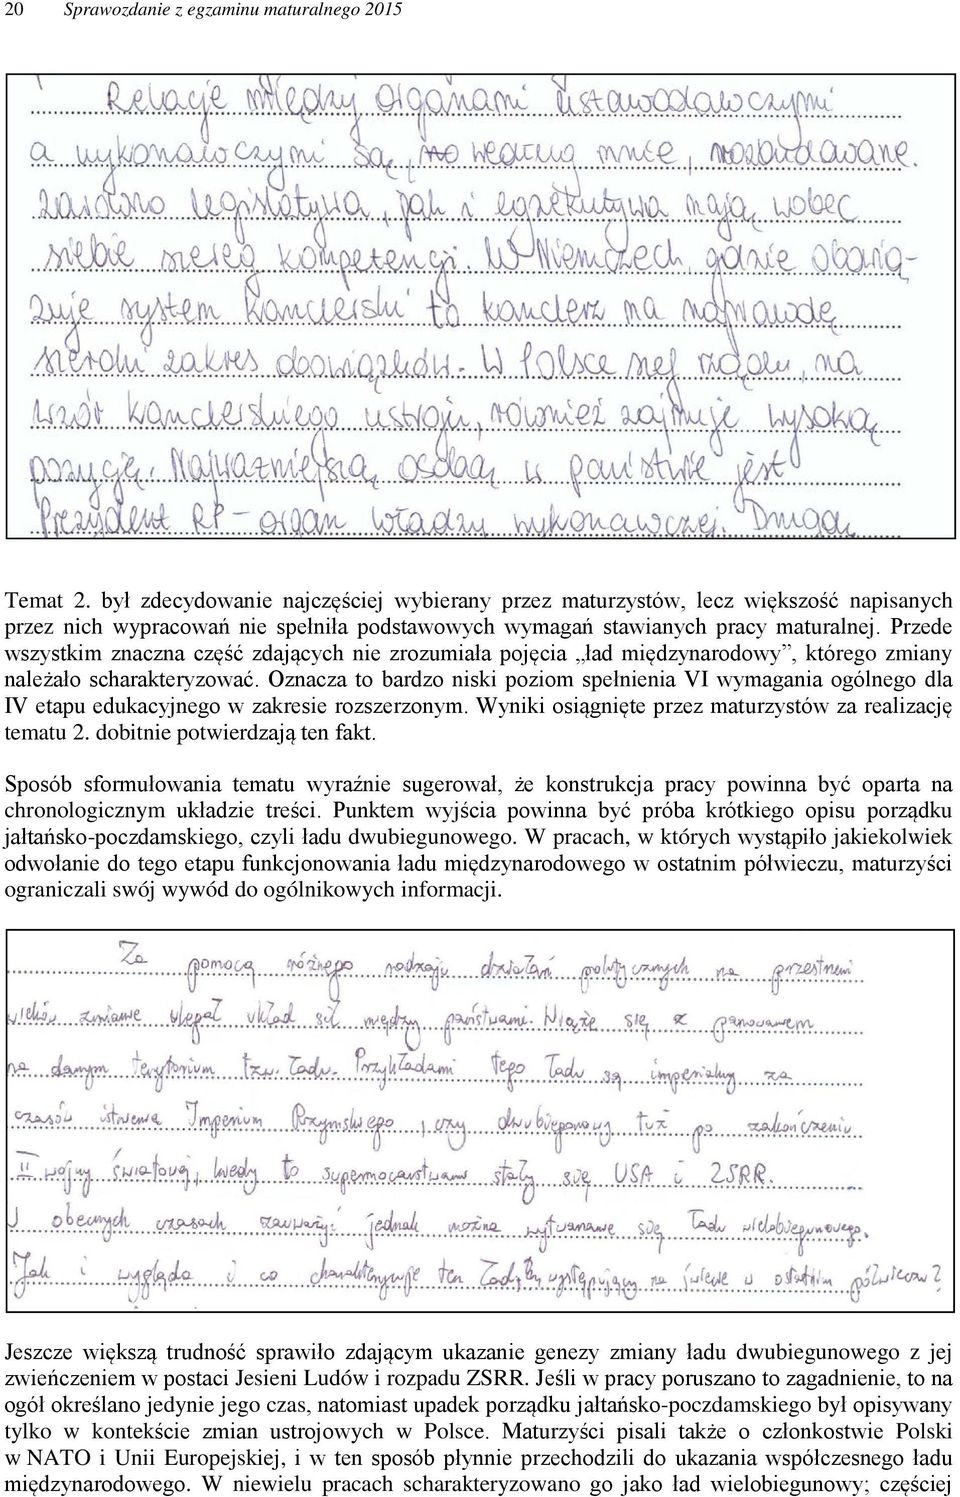 20 Sprawozdanie z egzaminu maturalnego 2015
Relacje między organami ustawodawczymi
a wykonawczymi są, według mnie, rozbudowane.
Zarówno legislatywa, jak i egzekutywa mają wobec
siebie szereg kompetencji. W Niemczech, gdzie obowią-
zuje system kanclerski to kanclerz ma naprawdę
szeroki zakres obowiązków. W Polsce szef rządu, na
wzór kanclerskiego ustroju, również zajmuje wysoką
pozycję. Najważniejszą osobą w państwie jest
Prezydent RP - organ władzy wykonawczej. Drugą
Temat 2. był zdecydowanie najczęściej wybierany przez maturzystów, lecz większość napisanych
przez nich wypracowań nie spełniła podstawowych wymagań stawianych pracy maturalnej. Przede
wszystkim znaczna część zdających nie zrozumiała pojęcia „ład międzynarodowy”, którego zmiany
należało scharakteryzować. Oznacza to bardzo niski poziom spełnienia VI wymagania ogólnego dla
IV etapu edukacyjnego w zakresie rozszerzonym. Wyniki osiągnięte przez maturzystów za realizację
tematu 2. dobitnie potwierdzają ten fakt.
Sposób sformułowania tematu wyraźnie sugerował, że konstrukcja pracy powinna być oparta na
chronologicznym układzie treści. Punktem wyjścia powinna być próba krótkiego opisu porządku
jałtańsko-poczdamskiego, czyli ładu dwubiegunowego. W pracach, w których wystąpiło jakiekolwiek
odwołanie do tego etapu funkcjonowania ładu międzynarodowego w ostatnim półwieczu, maturzyści
ograniczali swój wywód do ogólnikowych informacji.
Za pomocą różnego rodzaju działań politycznych na przestrzeni
wieków zmianie ulegał układ sił między państwami. Wiąże się z panowaniem
na danym terytorium tzw. ładu. Przykładami tego ładu są imperialny za
czasów istnienia Imperium Rzymskiego, czy dwubiegunowy tuż po zakończeniu
II wojny światowej, kiedy to supermocarstwami stały się USA i ZSRR.
W obecnych czasach zauważyć jednak można wytwarzanie się ładu wielobiegunowego.
Jak i wygląda i co charakteryzuje ten ład, występujący na świecie w ostatnim półwieczu?
Jeszcze większą trudność sprawiło zdającym ukazanie genezy zmiany ładu dwubiegunowego z jej
zwieńczeniem w postaci Jesieni Ludów i rozpadu ZSRR. Jeśli w pracy poruszano to zagadnienie, to na
ogół określano jedynie jego czas, natomiast upadek porządku jałtańsko-poczdamskiego był opisywany
tylko w kontekście zmian ustrojowych w Polsce. Maturzyści pisali także o członkostwie Polski
w NATO i Unii Europejskiej, i w ten sposób płynnie przechodzili do ukazania współczesnego ładu
międzynarodowego. W niewielu pracach scharakteryzowano go jako ład wielobiegunowy; częściej